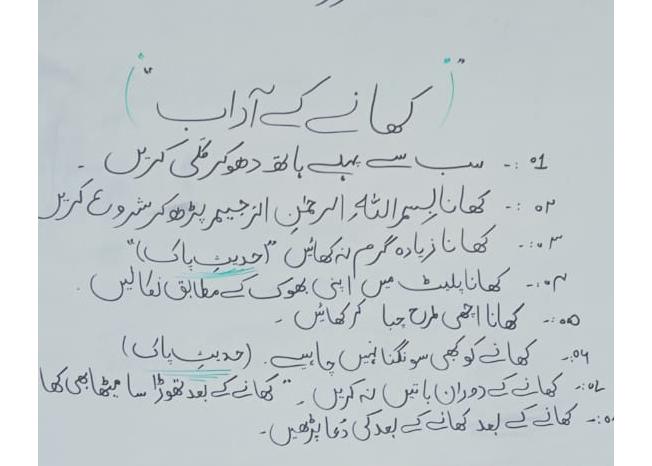 "( کھانے کے آداب )"
01 :۔ سب سے پہلے ہاتھ دھو کر کلی کریں ۔
۰۲ :۔ کھانا بِسمِ اللهِ الرحمٰنِ الرحیم پڑھ کر شروع کریں
۰۳ :۔ کھانا زیادہ گرم نہ کھائیں "(حدیثِ پاک)"
۰۴ :۔ کھانا پلیٹ میں اپنی بھوک کے مطابق نکالیں ۔
۰۵ :۔ کھانا اچھی طرح چبا کر کھائیں ۔
۰۶ :۔ کھانے کو کبھی سونگنا نہیں چاہیے ۔ (حدیثِ پاک)
۰۷ :۔ کھانے کے دوران باتیں نہ کریں ۔ " کھانے کے بعد تھوڑا سا میٹھا بھی کھا
:۔ کھانے کے بعد کھانے کے بعد کی دُعا پڑھیں ۔